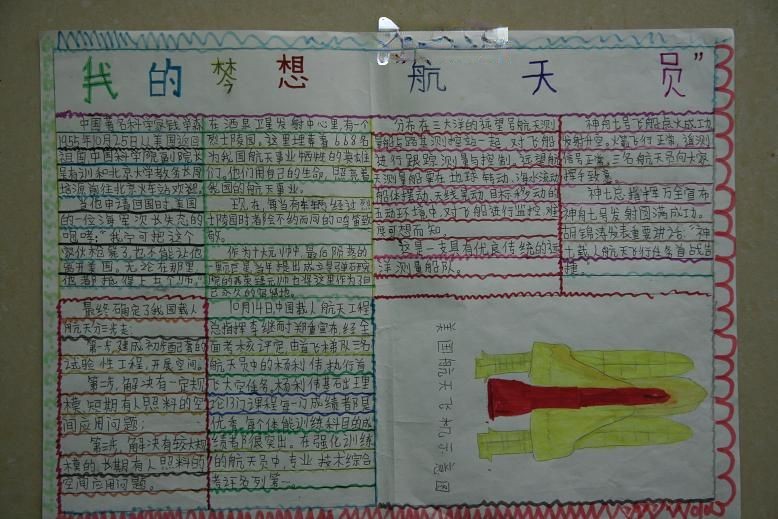 我的梦想 "航天员"
中国著名科学家钱学森
1955年10月25日从美国返回
祖国中国科学院副院长
吴有训和北京大学教务长周
培源前往北京火车站欢迎。
当他申请回国时美国
的一位海军次长失态的
咆哮:"我宁可把这个
家伙枪毙了,也不能让他
离开美国。无论在那里,
他都抵得上五个师。"
在酒泉卫星发射中心里有一个
烈士陵园。这里埋葬着668名
为我国航天事业牺牲的英雄
们。他们用自己的生命,照亮着
我国的航天事业。
现在,每当有车辆经过烈
士陵园时都会不约而同的鸣笛致
敬。
作为十大元帅中,最后
院的聂荣臻元帅也把这里作为了自
己永久的
最终确定了我国载人
航天分三步走:
第一步,建成初步配套的
试验性工程,开展空间。
第二步,解决有一定规
模、短期有人照料的空
间应用问题;
第三步,解决有较大规
模的、长期有人照料的
空间应用问题。
10月14日,中国载人航天工程
总指挥李继耐郑重宣布,经全
面考核评定,由首飞梯队三名
航天员中的杨利伟执行首
飞大空任务。杨利伟基本出工理
论13门课程每一门成绩都是
优秀,每个体能训练科目的成
绩都很突出。在强化训练
的航天员中,专业技术综合
考评名列第一。
分布在三大洋的远望号航天测
量船与路基测控站一起,对飞船
进行跟踪测量与控制。远望航
天测量船呆在地球转动、海水流动、
船体摆动、天线晃动、目标移动的
五动环境中,对飞船进行监控难
度可想而知。
这是一支具有优良传统的远
洋测量船队。
神舟七号飞船点火成功
发射升空。火箭飞行正常,遥测
信号正常。三名航天员向大家
挥手致意。
神七总指挥 万全宣布
神舟七号发射圆满成功。
胡锦涛发表重要讲话:"神
七载人航天飞行任务首战告
捷
美国航天飞机示意图